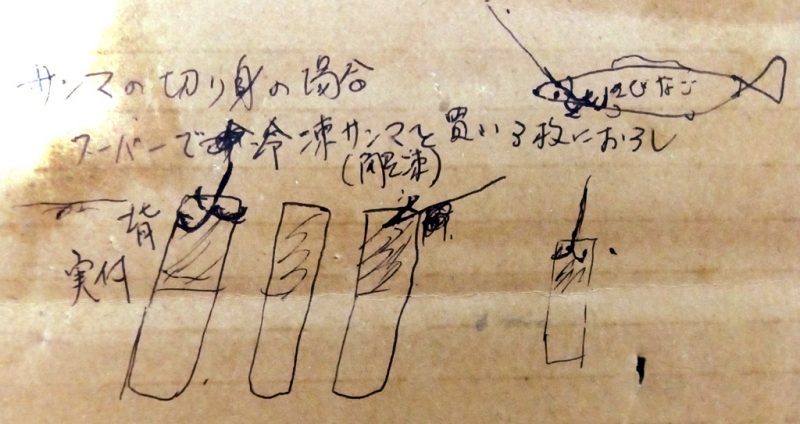 サンマの切り身の場合
きびなご
スーパーで冷凍サンマを買い3枚におろし
(解凍)
背
実付